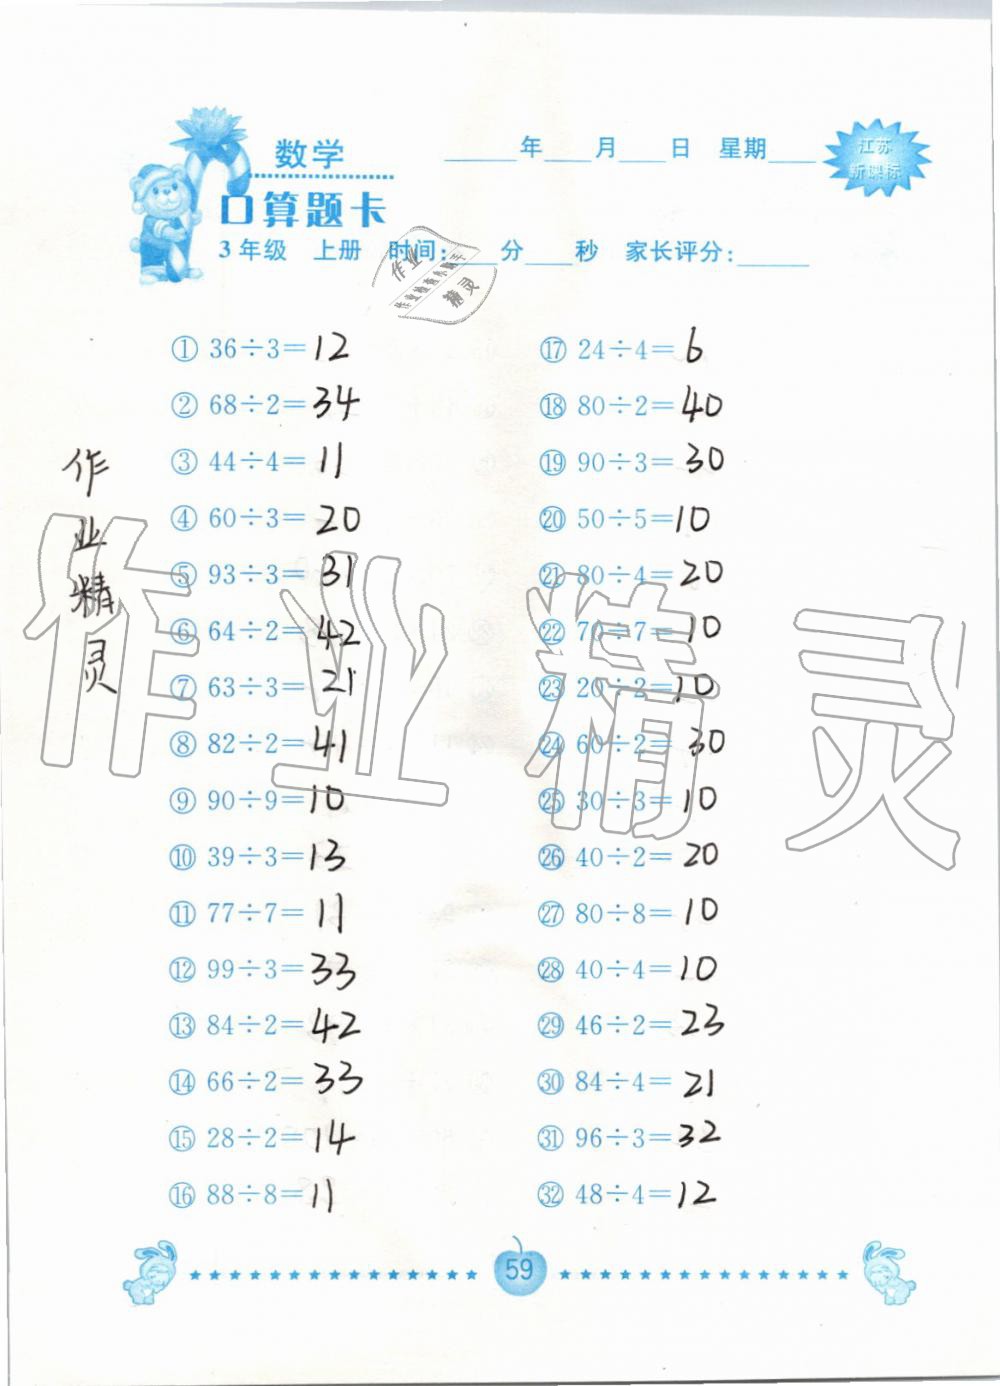 数学
口算题卡
____年___月___日 星期___
江苏
新课标
3年级 上册 时间:___分___秒 家长评分:____
作业
作业检查小助手
精灵
① 36÷3=12
② 68÷2=34
③ 44÷4=11
④ 60÷3=20
⑤ 93÷3=31
⑥ 64÷2=42
⑦ 63÷3=21
⑧ 82÷2=41
⑨ 90÷9=10
⑩ 39÷3=13
⑪ 77÷7=11
⑫ 99÷3=33
⑬ 84÷2=42
⑭ 66÷2=33
⑮ 28÷2=14
⑯ 88÷8=11
⑰ 24÷4=6
⑱ 80÷2=40
⑲ 90÷3=30
⑳ 50÷5=10
㉑ 80÷4=20
㉒ 70÷7=10
㉓ 20÷2=10
㉔ 60÷2=30
㉕ 30÷3=10
㉖ 40÷2=20
㉗ 80÷8=10
㉘ 40÷4=10
㉙ 46÷2=23
㉚ 84÷4=21
㉛ 96÷3=32
㉜ 48÷4=12
作业精灵
作业精灵
59